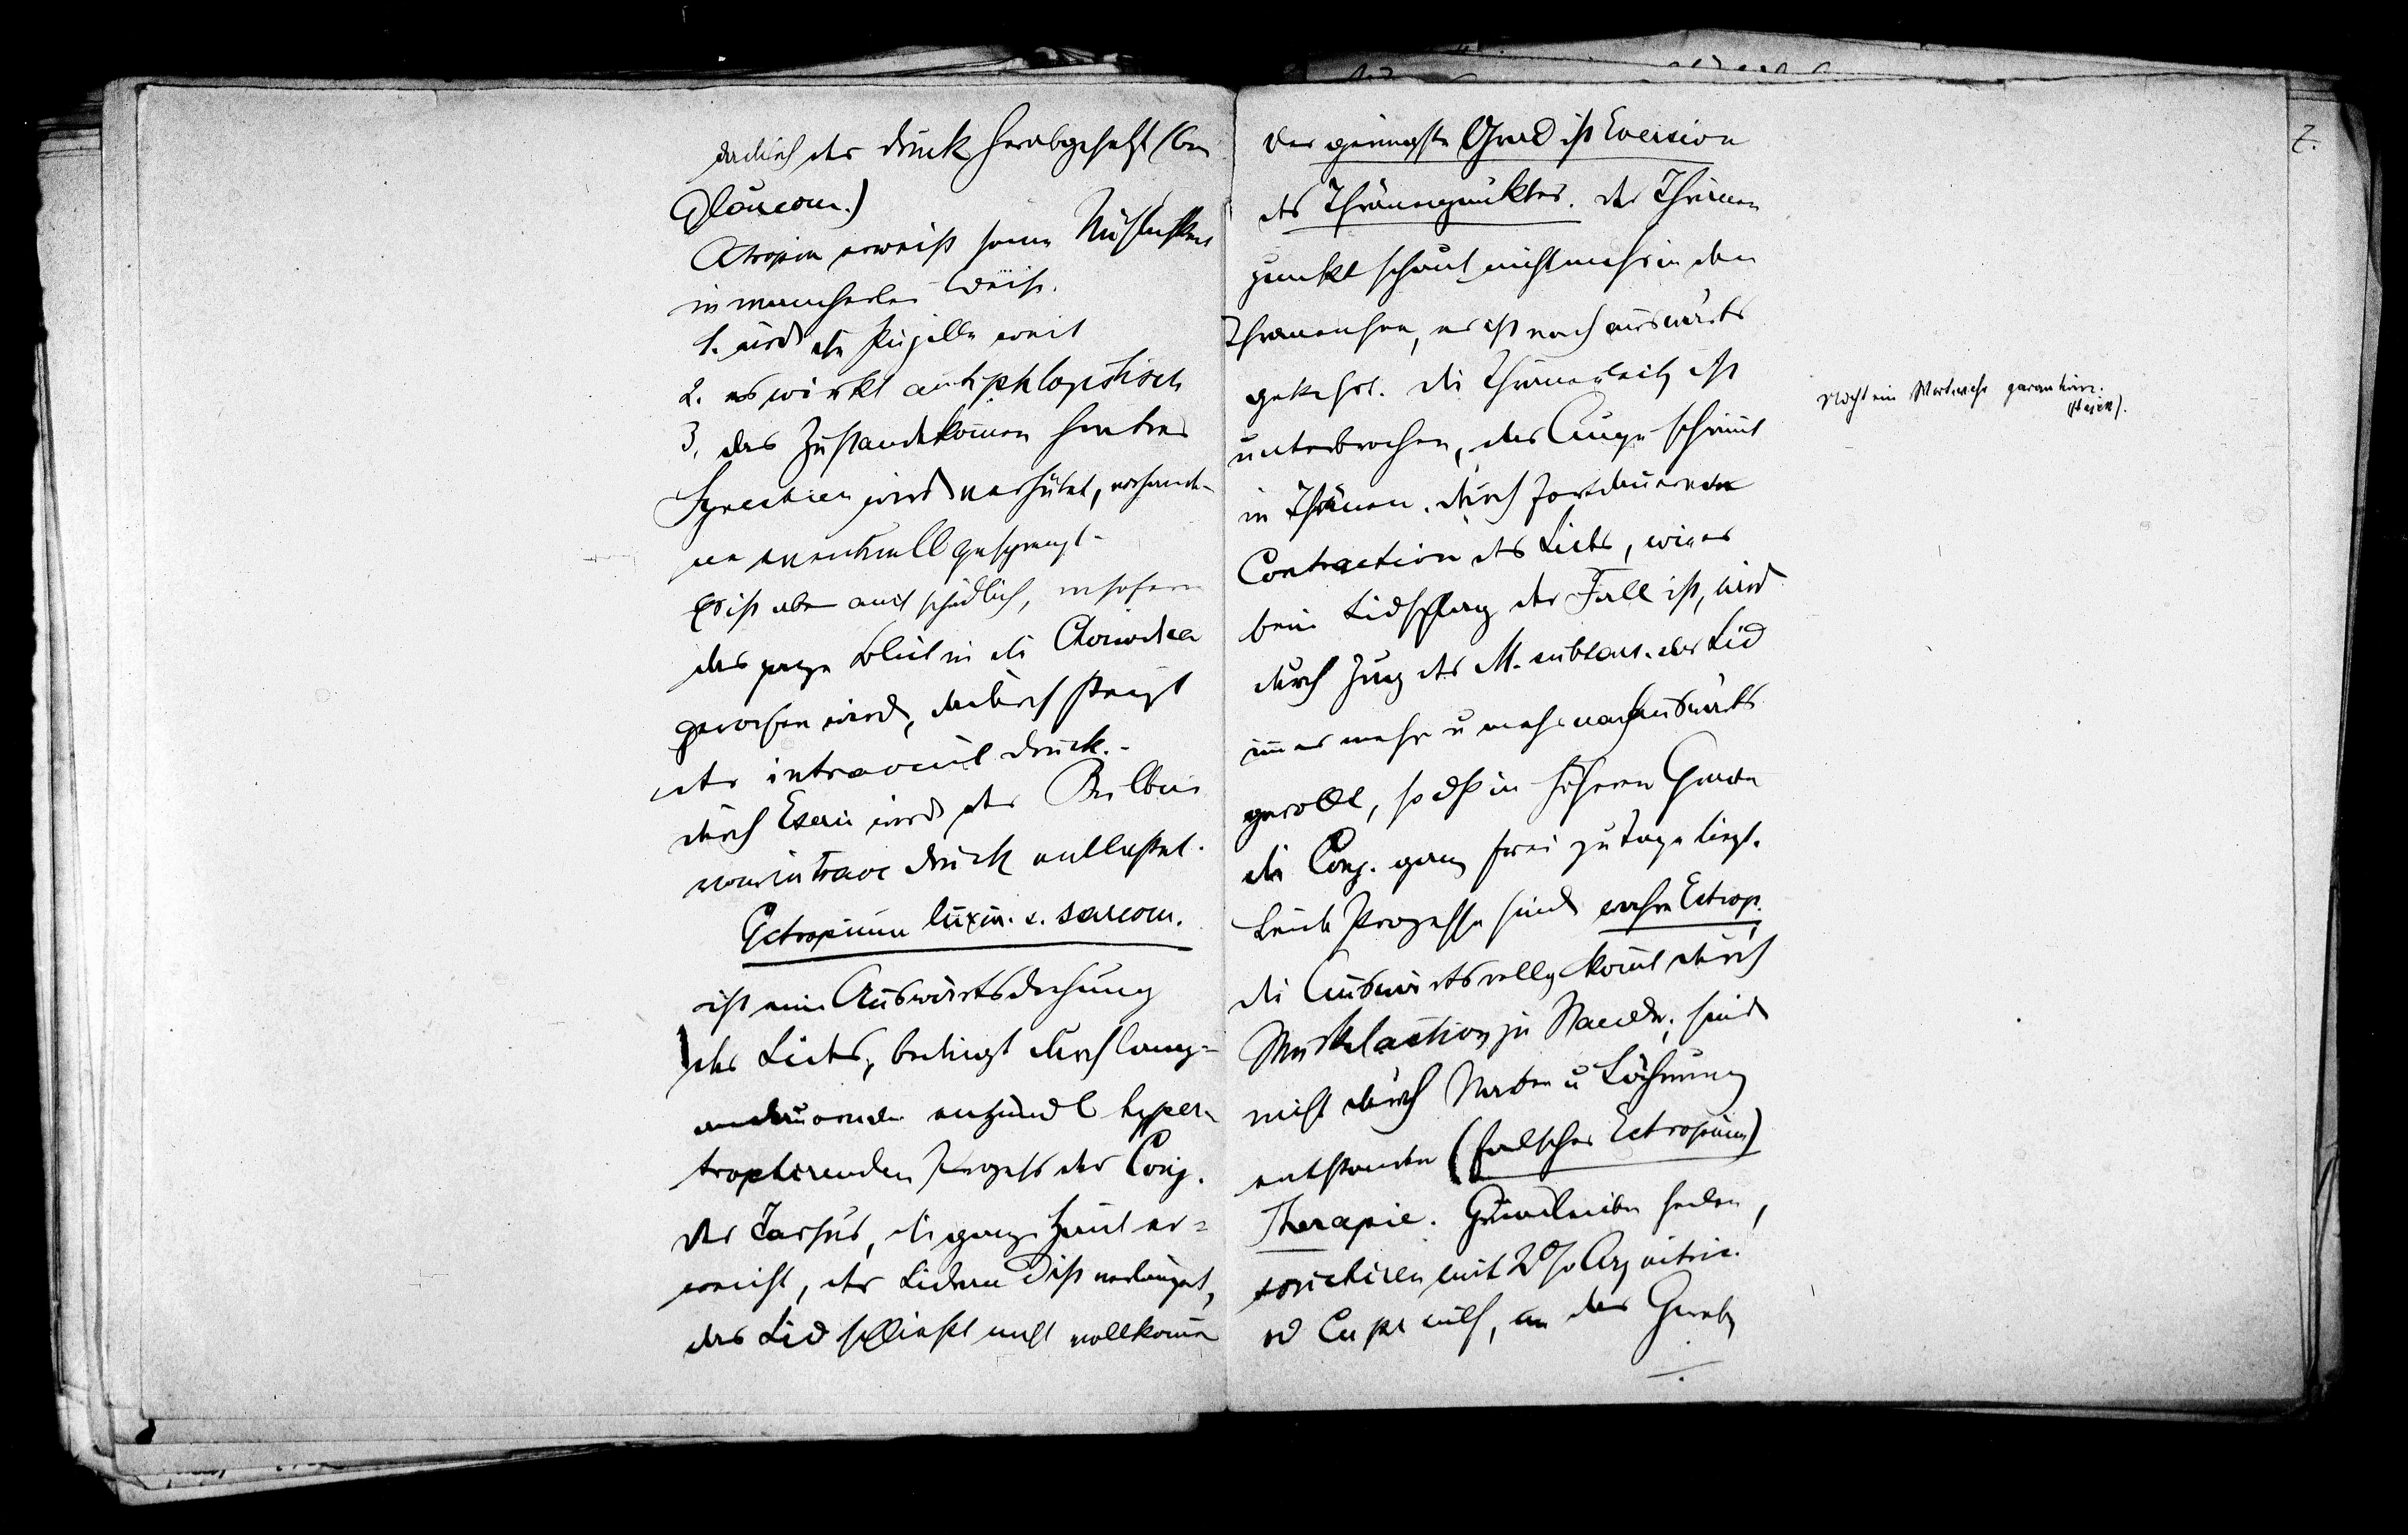 dadurch der Druck herabgesetzt (bei
Glaucom.)
Atropin erweist seine Nützlichkeit
in mancherlei Weise.
1. wird die Pupille weit
2. es wirkt antiphlogistisch
3. das Zustandekommen hinterer
Synechien wird verhütet, vorhande-
ne eventuell gesprengt.
Es ist aber auch schädlich, insofern
das ganze Blut in die Chorioidea
geworfen wird, dadurch steigt
der intraocul Druck.-
durch Eserin wird der Bulbus
vom intraoc Druck entlastet.
Ectropium luxur. s. sarcom.
ist eine Auswärtsdrehung
des Lides, bedingt durch lang=
andauernden entzündl hyper-
trophirenden Prozess der Conj.
Der Tarsus, die ganze Haut er=
weicht, der Lidrand ist verlängert,
das Lid schließt nicht vollkomm̅en
Der geringste Grad ist Eversion
des Thränenpunktes. Der Thränen
punkt schaut nicht mehr in den
Thränensee, er ist nach auswärts
gekehrt. Die Thränenleitg ist
unterbrochen, das Auge schwim̅t
in Thränen. Durch fortdauernde
Contraction des Lides, wie es
beim Lidschlag der Fall ist, wird
durch Zug des M. subtars. das Lid
im̅er mehr u mehr nach auswärts
gerollt, so dß in höheren Graden
die Conj. ganz frei zu Tage liegt.
Beide Prozesse sind wahre Ectrop.
die Auswärtsrollg kom̅t durch
Muskelaction zu Stande, sind
nicht durch Narben u Lähmung
entstanden (falsches Ectropium)
Therapie. Grundleiden heilen,
touchiren mit 2% Arg nitric.
od Cupr sulf, an der Grenze
7.
Nicht ein
garantiren.